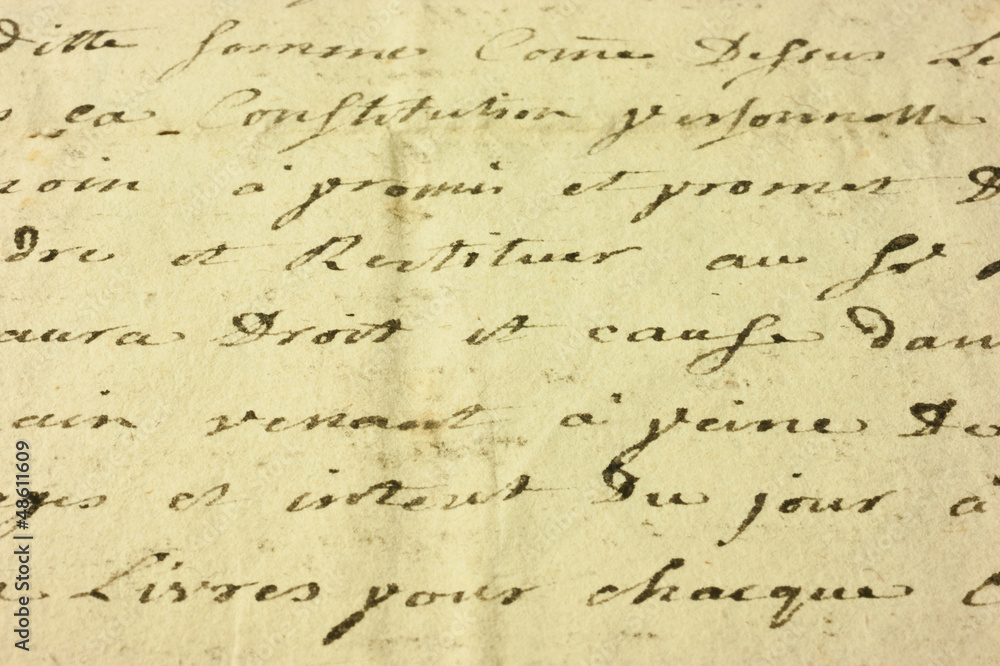 ditte somme Come Dessus Le
ça Constitution personnelle
à promis et promet D
dre et Restituer au Sr
aura Droit et cause dan
ain venant à peine De
et interet Du jour à
Livres pour chacque
Adobe Stock | #48611609